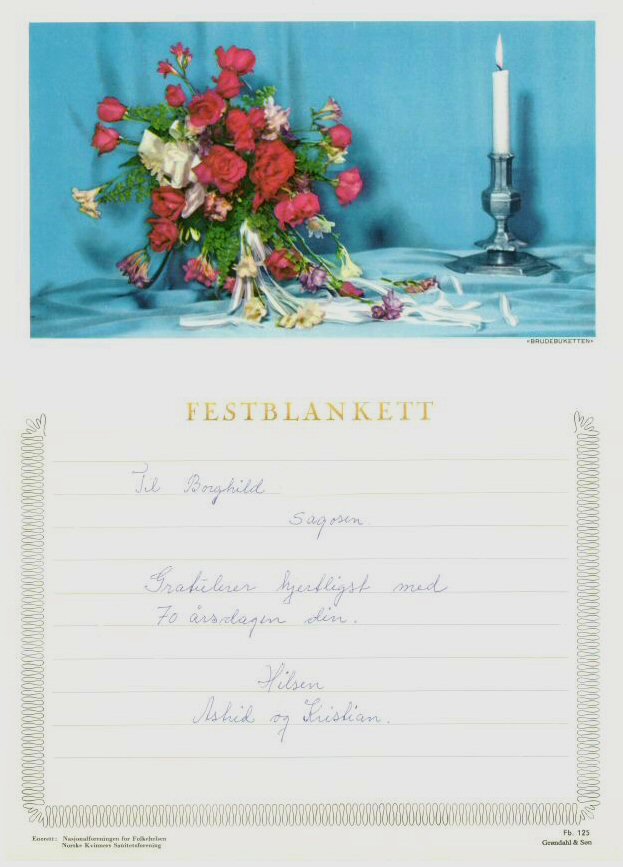 «BRUDEBUKETTEN»
FESTBLANKETT
Til Borghild
Sagosen
Gratulerer hjertligst med
70 årsdagen din.
Hilsen
Astrid og Kristian.
Enerett: Nasjonalforeningen for Folkehelsen
Norske Kvinners Sanitetsforening
Fb. 125
Grøndahl & Søn